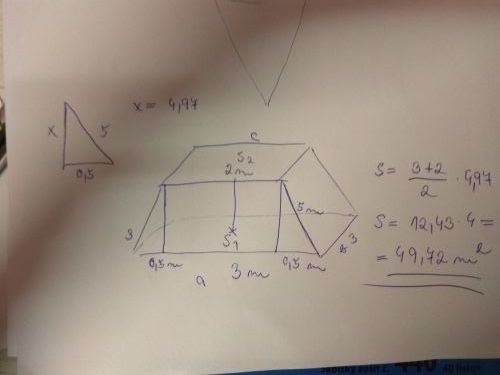 x = 4,97
x
5
0,5
c
S2
2m
5m
3
S1
0,5 m
0,5 m
a
3 m
3
S = 3+2 / 2 · 4,97
S = 12,43 · 4 =
= 49,72 m²
440